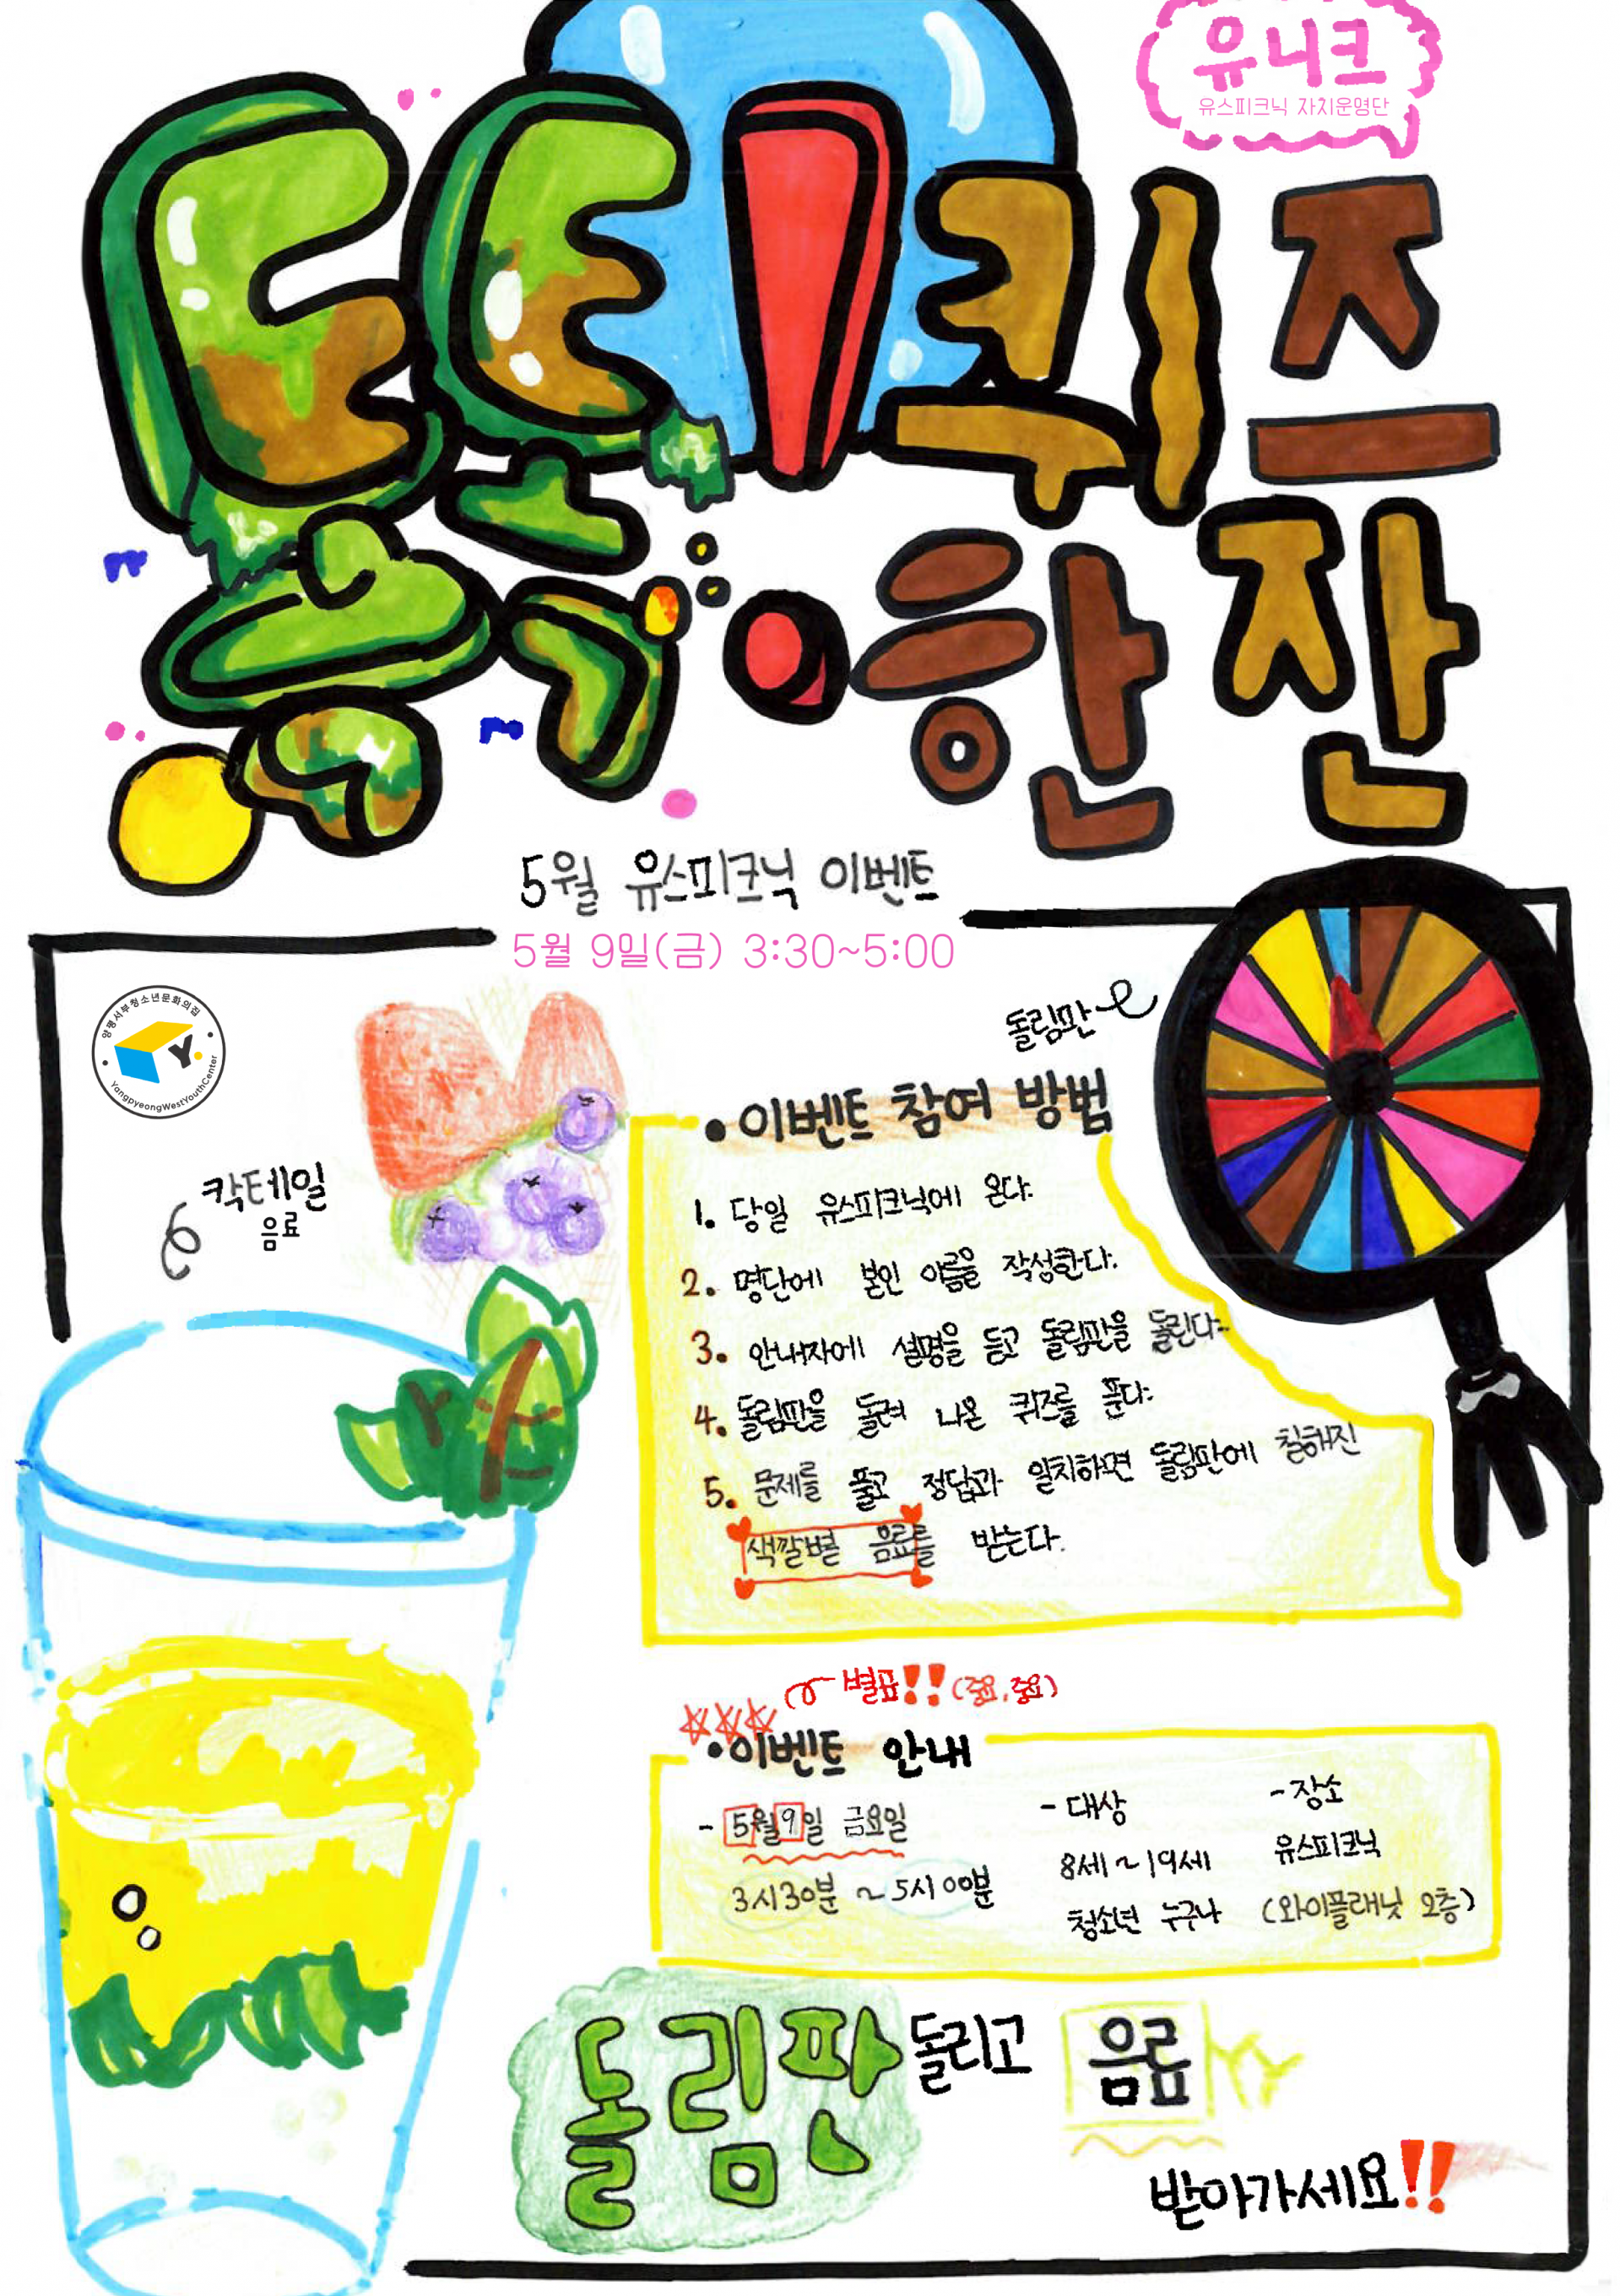 유니크
유스피크닉 자치운영단
톡톡! 퀴즈
한잔
5월 유스피크닉 이벤트
5월 9일(금) 3:30~5:00
양평서부청소년문화의집
Y.
YangpyeongWestYouthCenter
돌림판
칵테일
음료
• 이벤트 참여 방법
1. 당일 유스피크닉에 온다.
2. 명단에 본인 이름을 작성한다.
3. 안내자에 설명을 듣고 돌림판을 돌린다.
4. 돌림판을 돌려 나온 퀴즈를 푼다.
5. 문제를 풀고 정답과 일치하면 돌림판에 칠해진
색깔별 음료를 받는다.
별표!! (중요, 중요)
• 이벤트 안내
- 5월 9일 금요일
3시30분 ~ 5시 00분
- 대상
8세 ~ 19세
청소년 누구나
- 장소
유스피크닉
(와이플래닛 2층)
돌림판 돌리고 음료
받아가세요!!